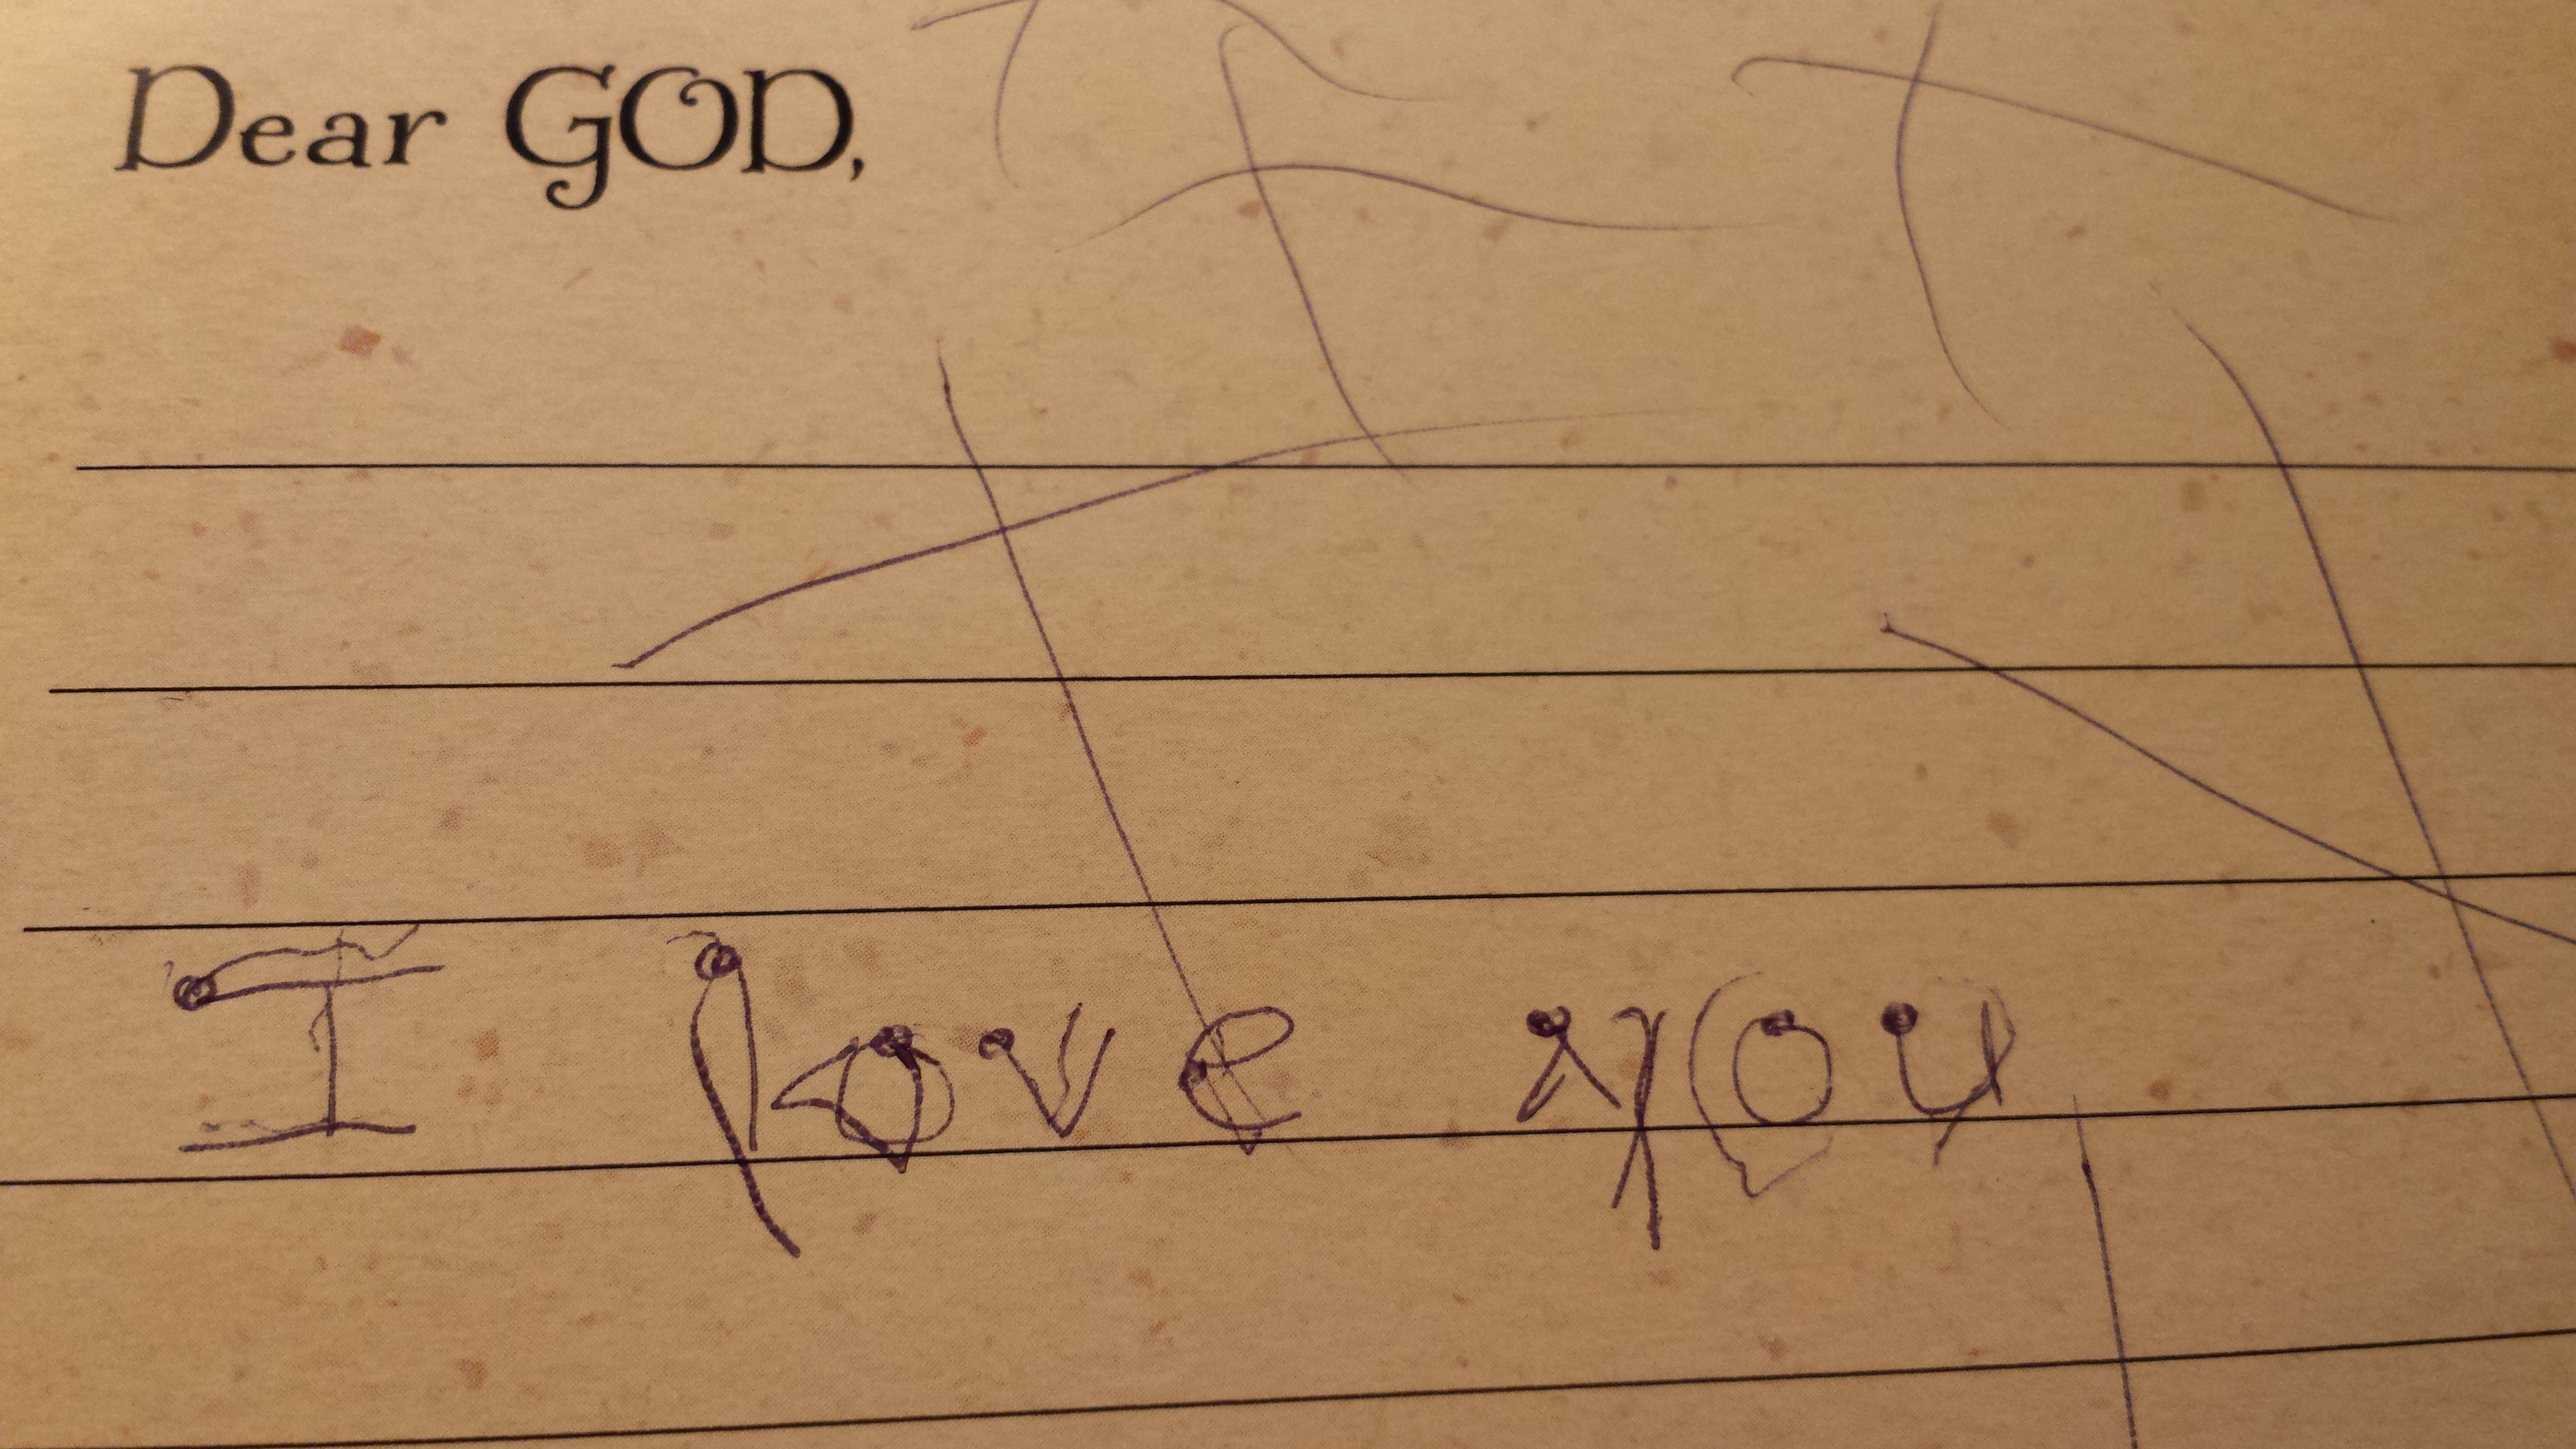 Dear GOD,
I love you